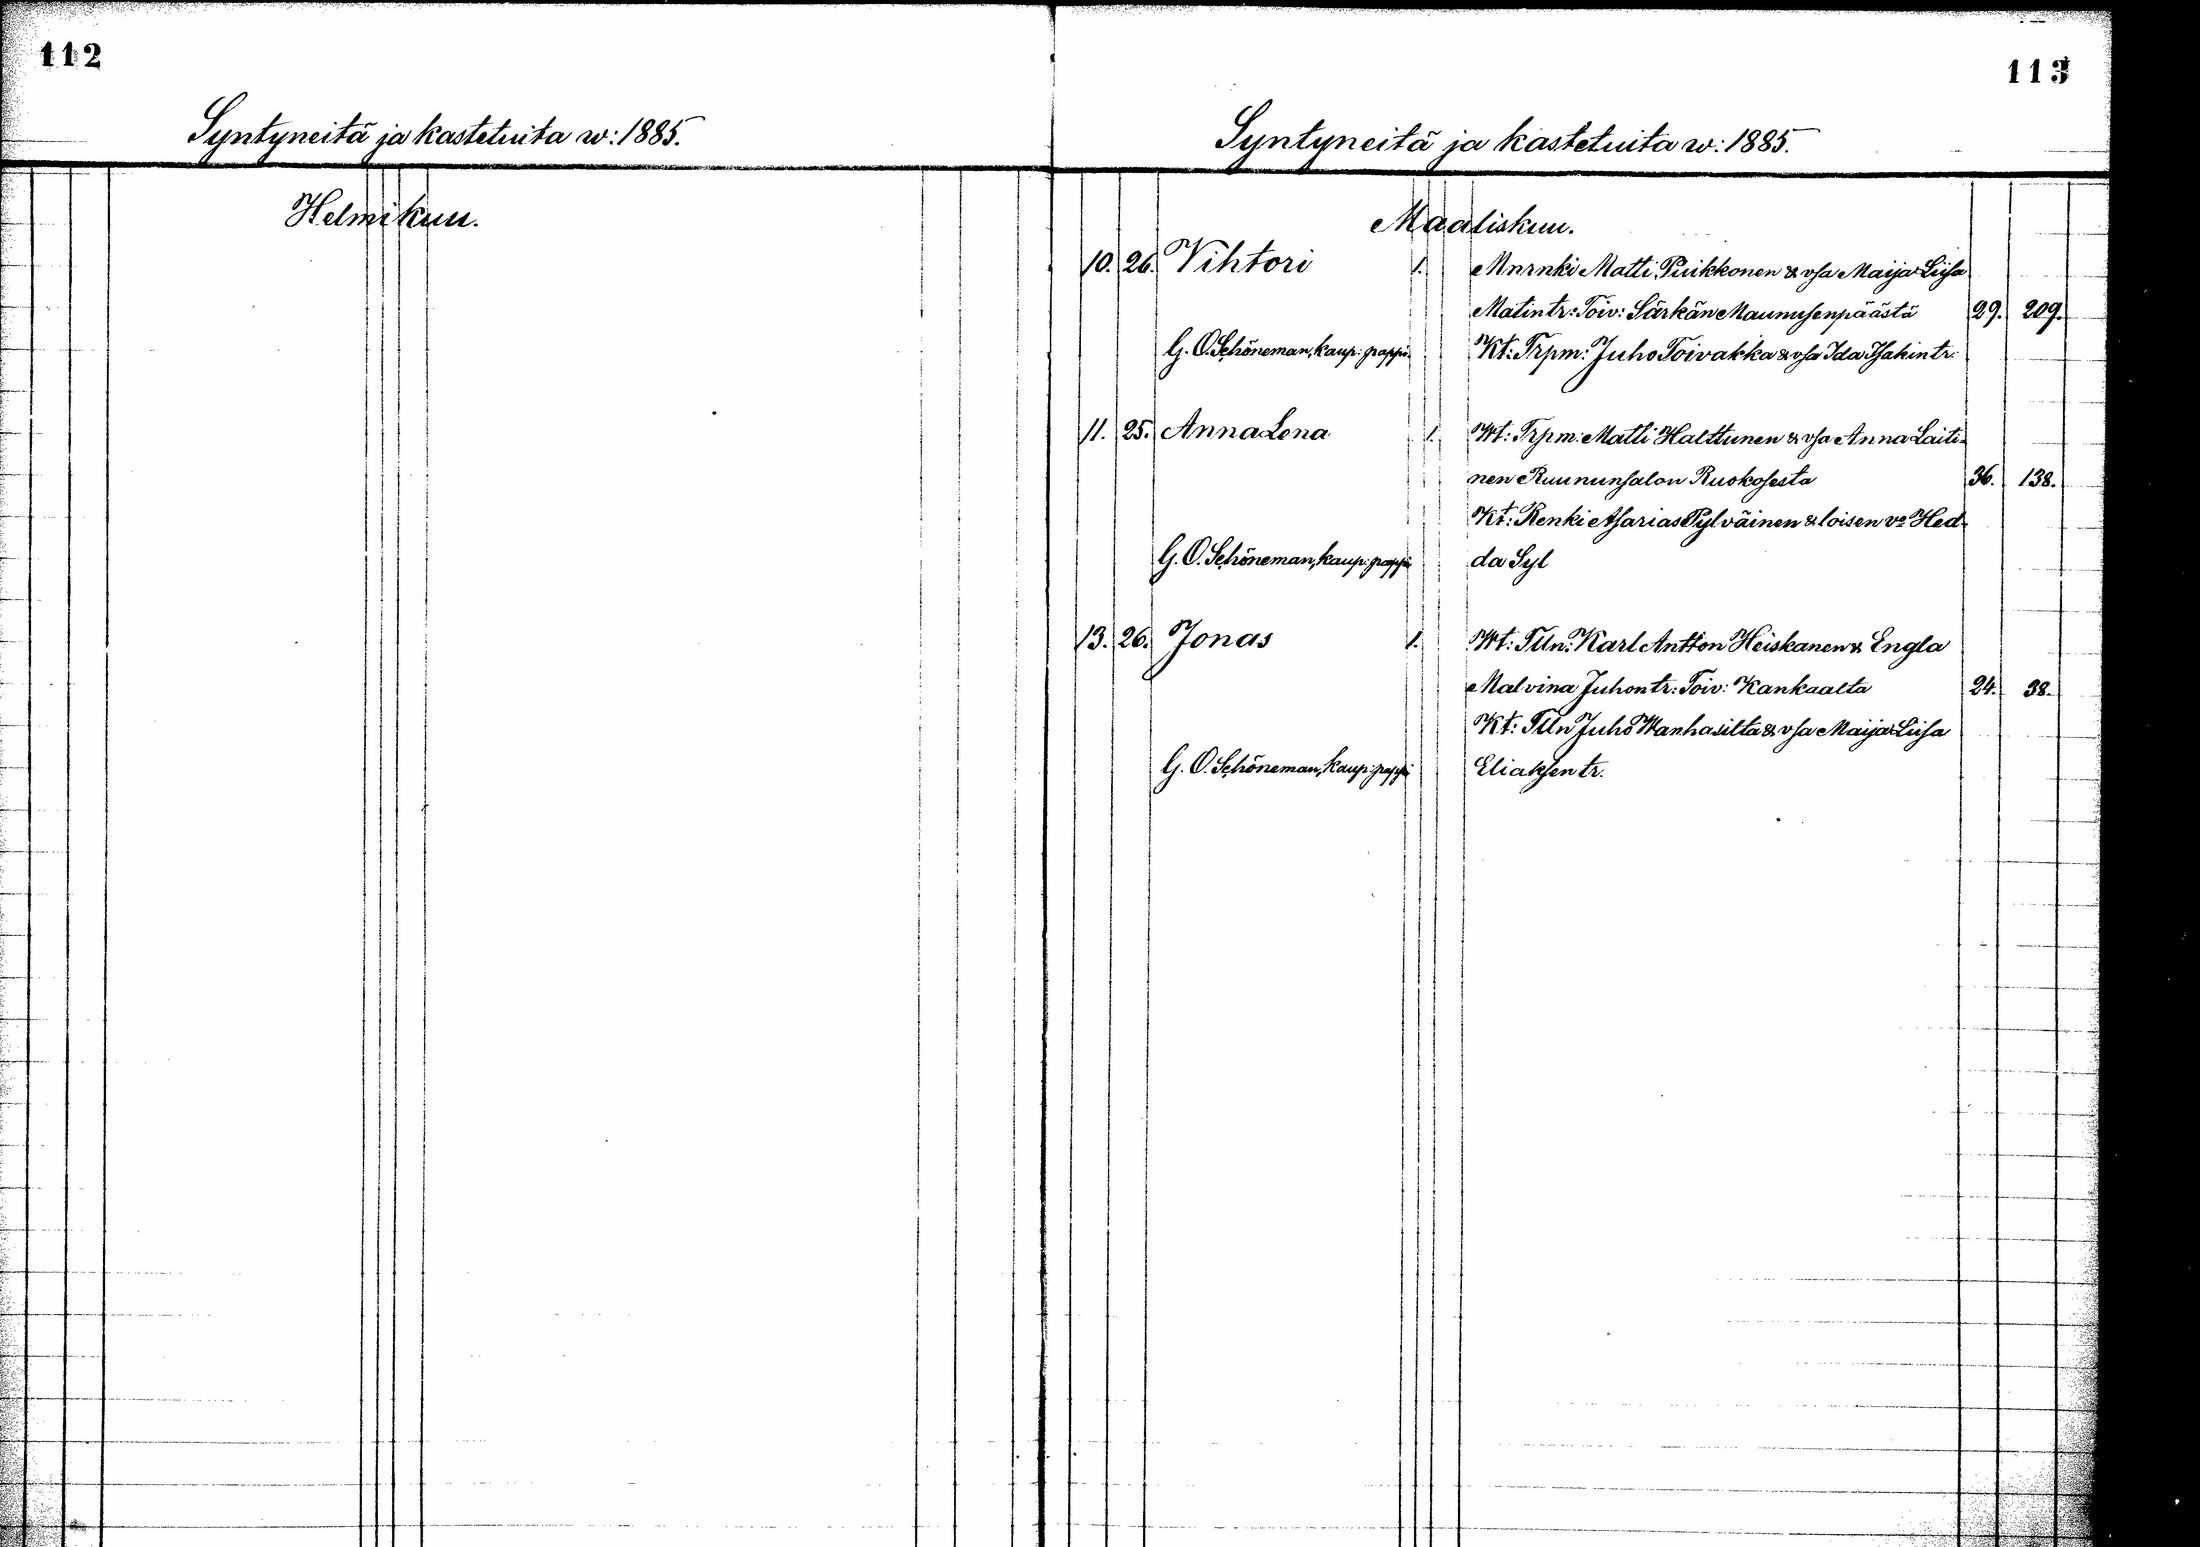 112
Syntyneitä ja kastetuita w: 1885.
Helmikuu.
113
Syntyneitä ja kastetuita w: 1885.
Maaliskuu.
10. 26. Vihtori 1. Mnrnki Matti Puikkonen & vsa Maija Liisa
Matintr: Toiv: Särkän Maunusenpäästä 29. 209.
G. O. Schöneman, kaup: pappi. Kt: Trpm: Juho Toivakka & vsa Ida Isakintr.
11. 25. Anna Lena 1. Wt: Trpm: Matti Halttunen & vsa Anna Laiti-
nen Ruununsalon Ruokosesta 36. 138.
Kt: Renki Asarias Pylväinen & loisen vo Hed-
G. O. Schöneman, kaup: pappi da Syl
13. 26. Jonas 1. Wt: Tlln: Karl Antton Heiskanen & Engla
Malvina Juhontr: Toiv: Kankaalta 24. 38.
Kt: Tlln Juho Wanhasilta & vsa Maija Liisa
G. O. Schöneman, kaup: pappi Eliaksen tr.